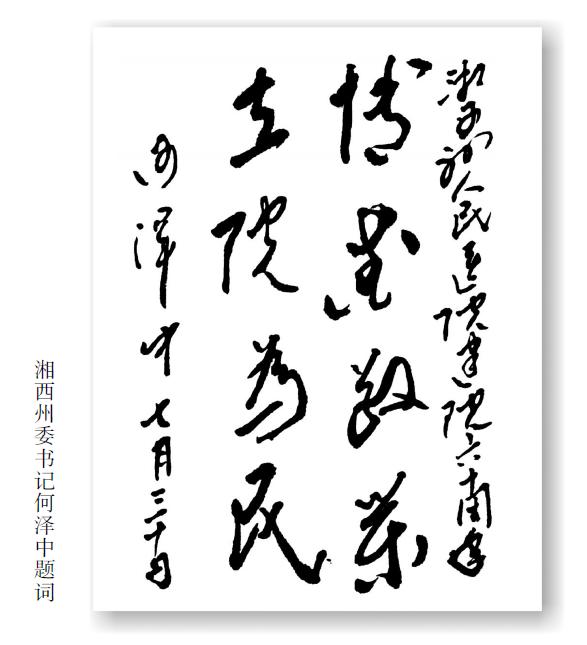 湘西州人民医院建院六十周年
博爱敬业
立院为民
何泽中 七月三十日
湘西州委书记何泽中题词